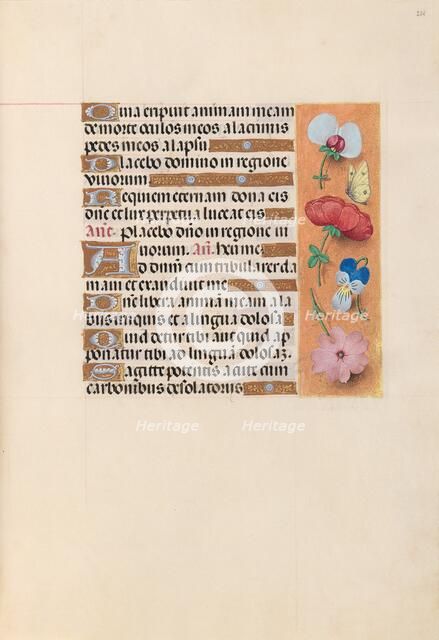 Q uia eripuit animam meam
de morte oculos meos a lacrimis
pedes meos a lapsu
P lacebo domino in regione
vivorum
R equiem eternam dona eis
dñe et lux perpetua luceat eis
Añt. placebo dño in regione
vivorum. Añ. heu me.
A d dnm cum tribularer cla
mavi et exaudivit me
D ne libera animã meam a la
bus iniquis et a lingua dolosa
Q uid detur tibi aut quid ap
ponatur tibi ad linguã dolosã
S agitte potentis acute cum
carbonibus desolatoriis
Heritage
Heritage
Heritage
Heritage
Heritage
Heritage